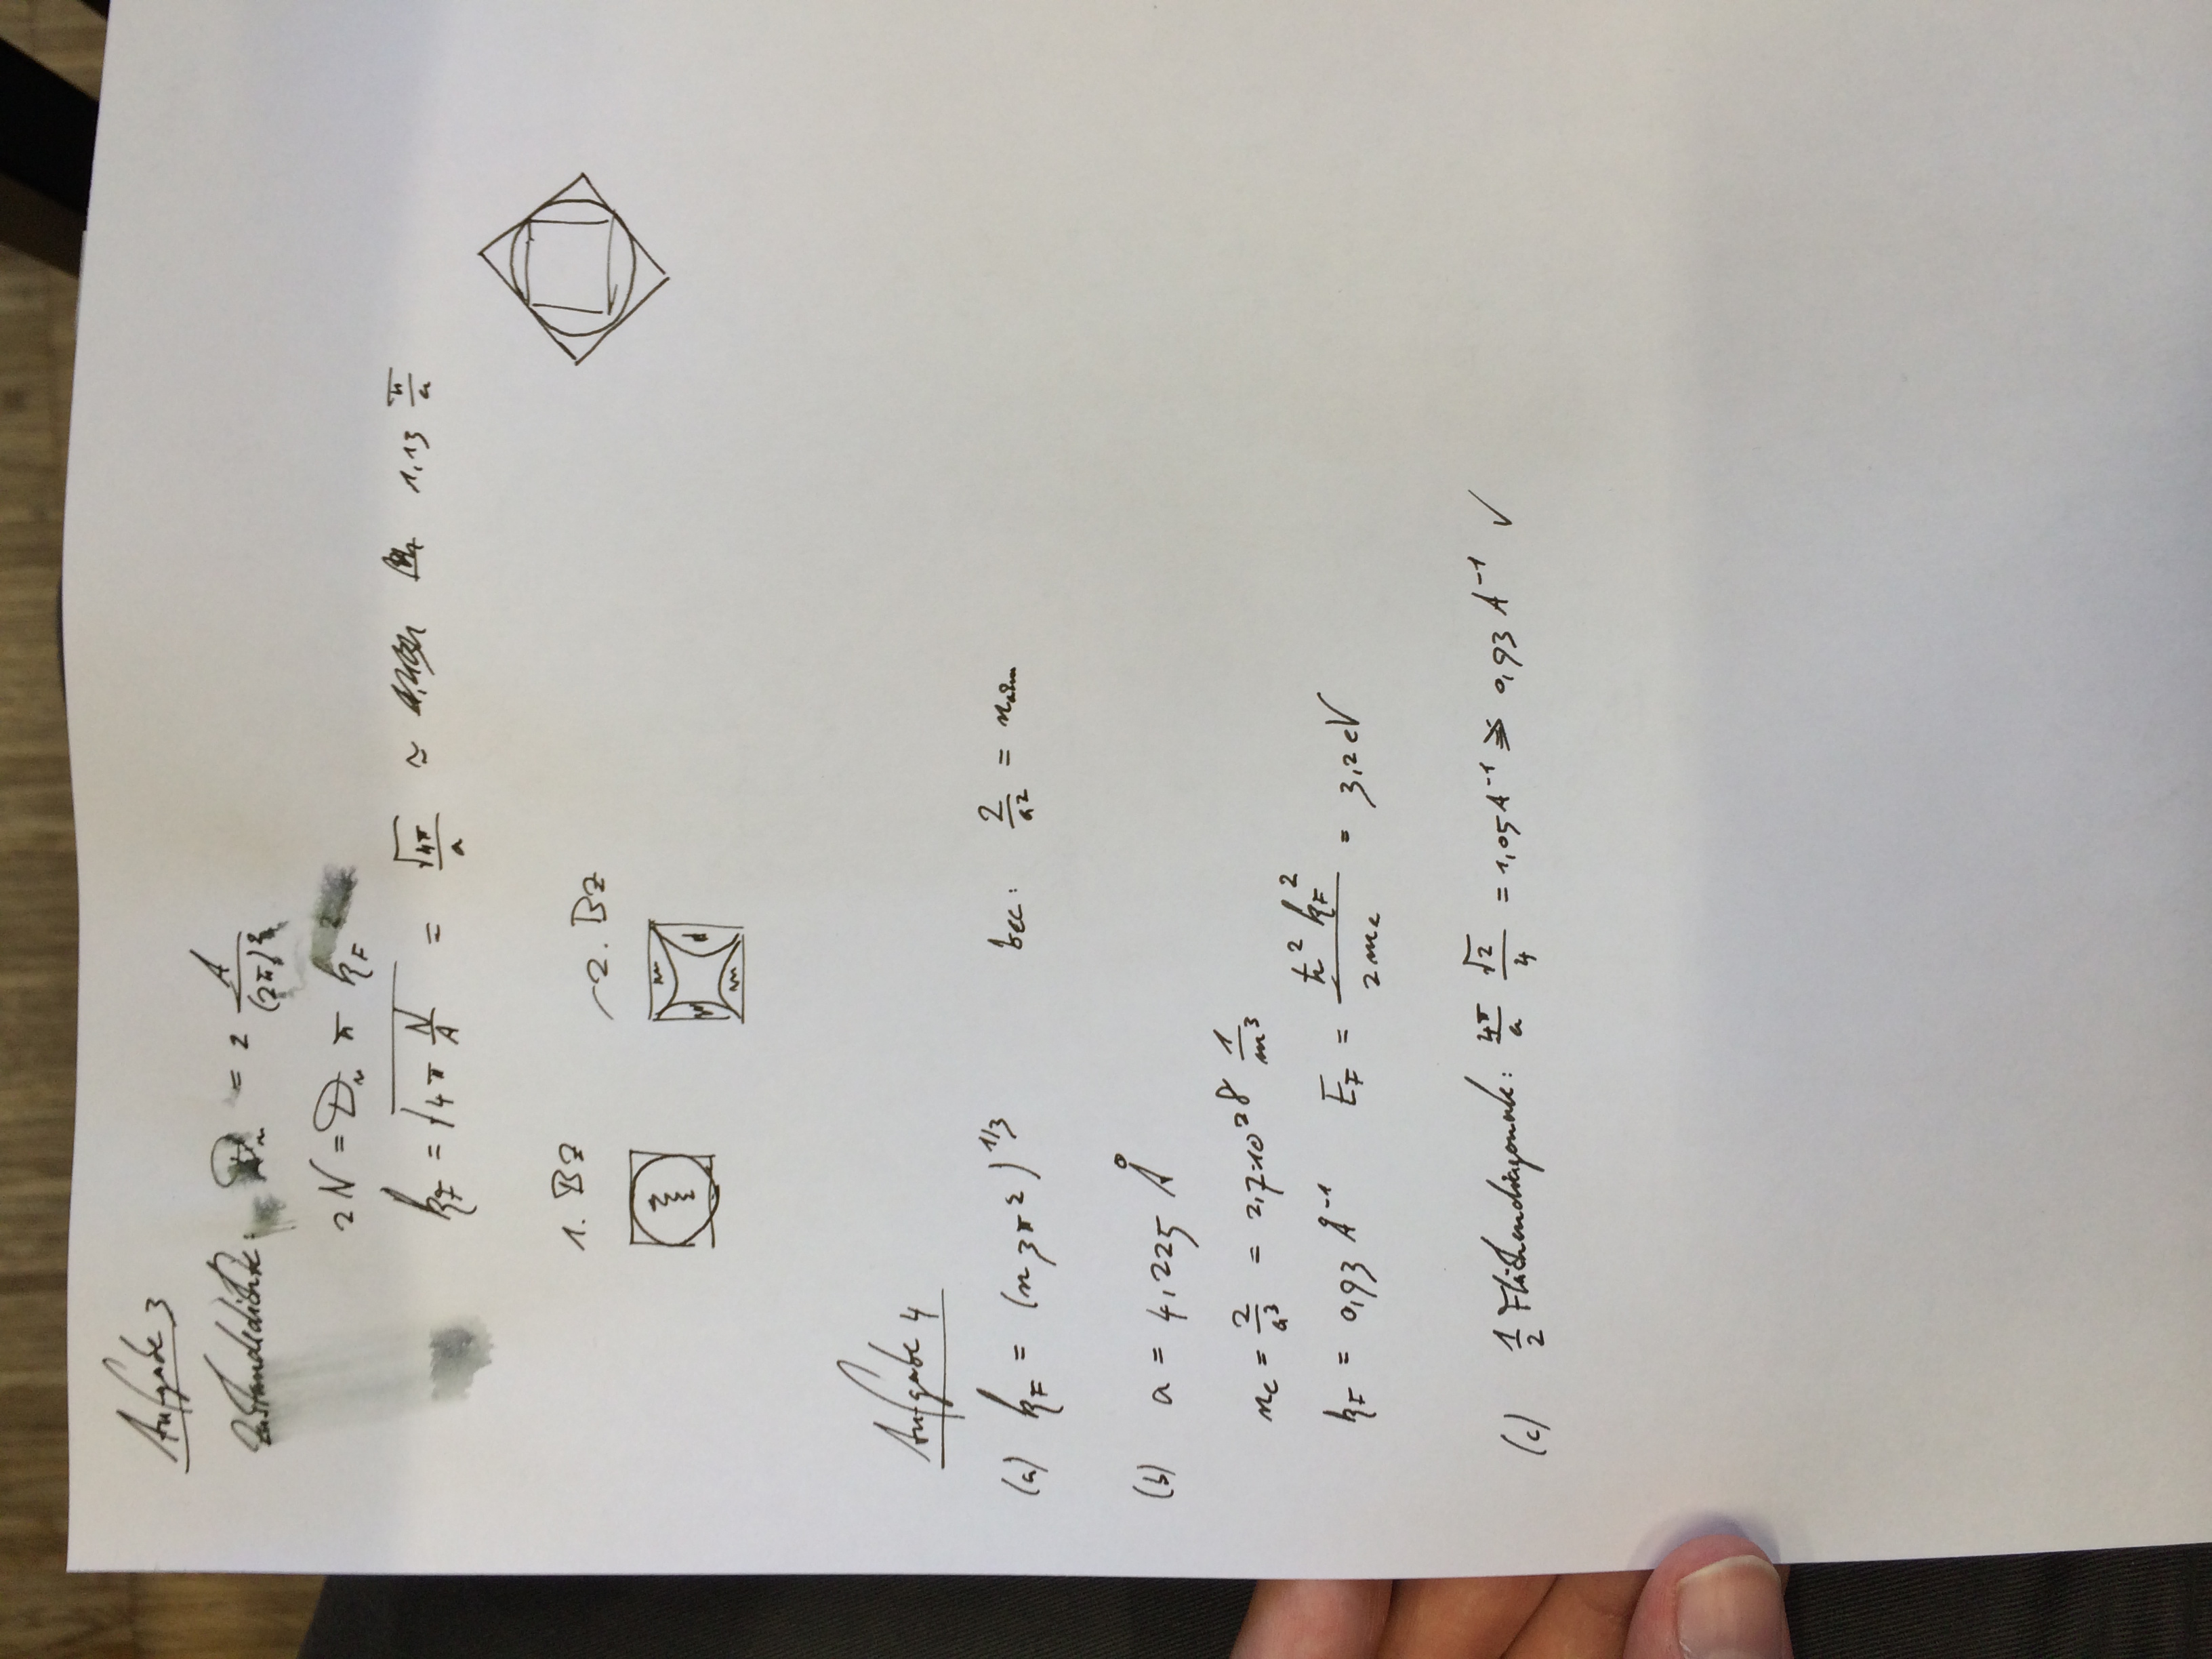 Aufgabe 3
Zustandsdichte: D_n = 2 A/(2π)²
2N = D_n π k_F²
k_F = √(4π N/A) = √(4π)/a ≈ 1,13 π/a
1. BZ 2. BZ
Aufgabe 4
(a) k_F = (n 3π²)^1/3 bcc: 2/a² =
(b) a = 4,225 Å
n_e = 2/a³ = 2,7·10^28 1/m³
k_F = 0,93 Å⁻¹ E_F = ħ² k_F²/2m_e = 3,2 eV
(c) 1/2 Flächendiagonale: 4π/a √2/4 = 1,05 Å⁻¹ > 0,93 Å⁻¹ ✓